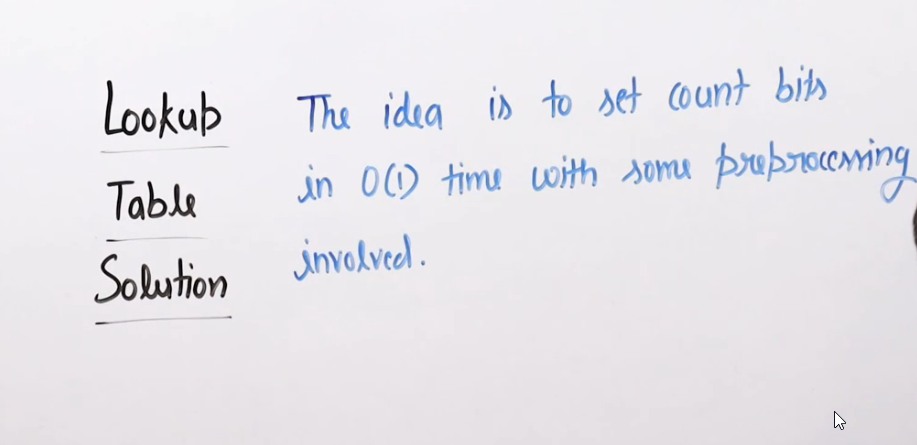 Lookup
Table
Solution
The idea is to set count bits
in O(1) time with some preprocessing
involved.